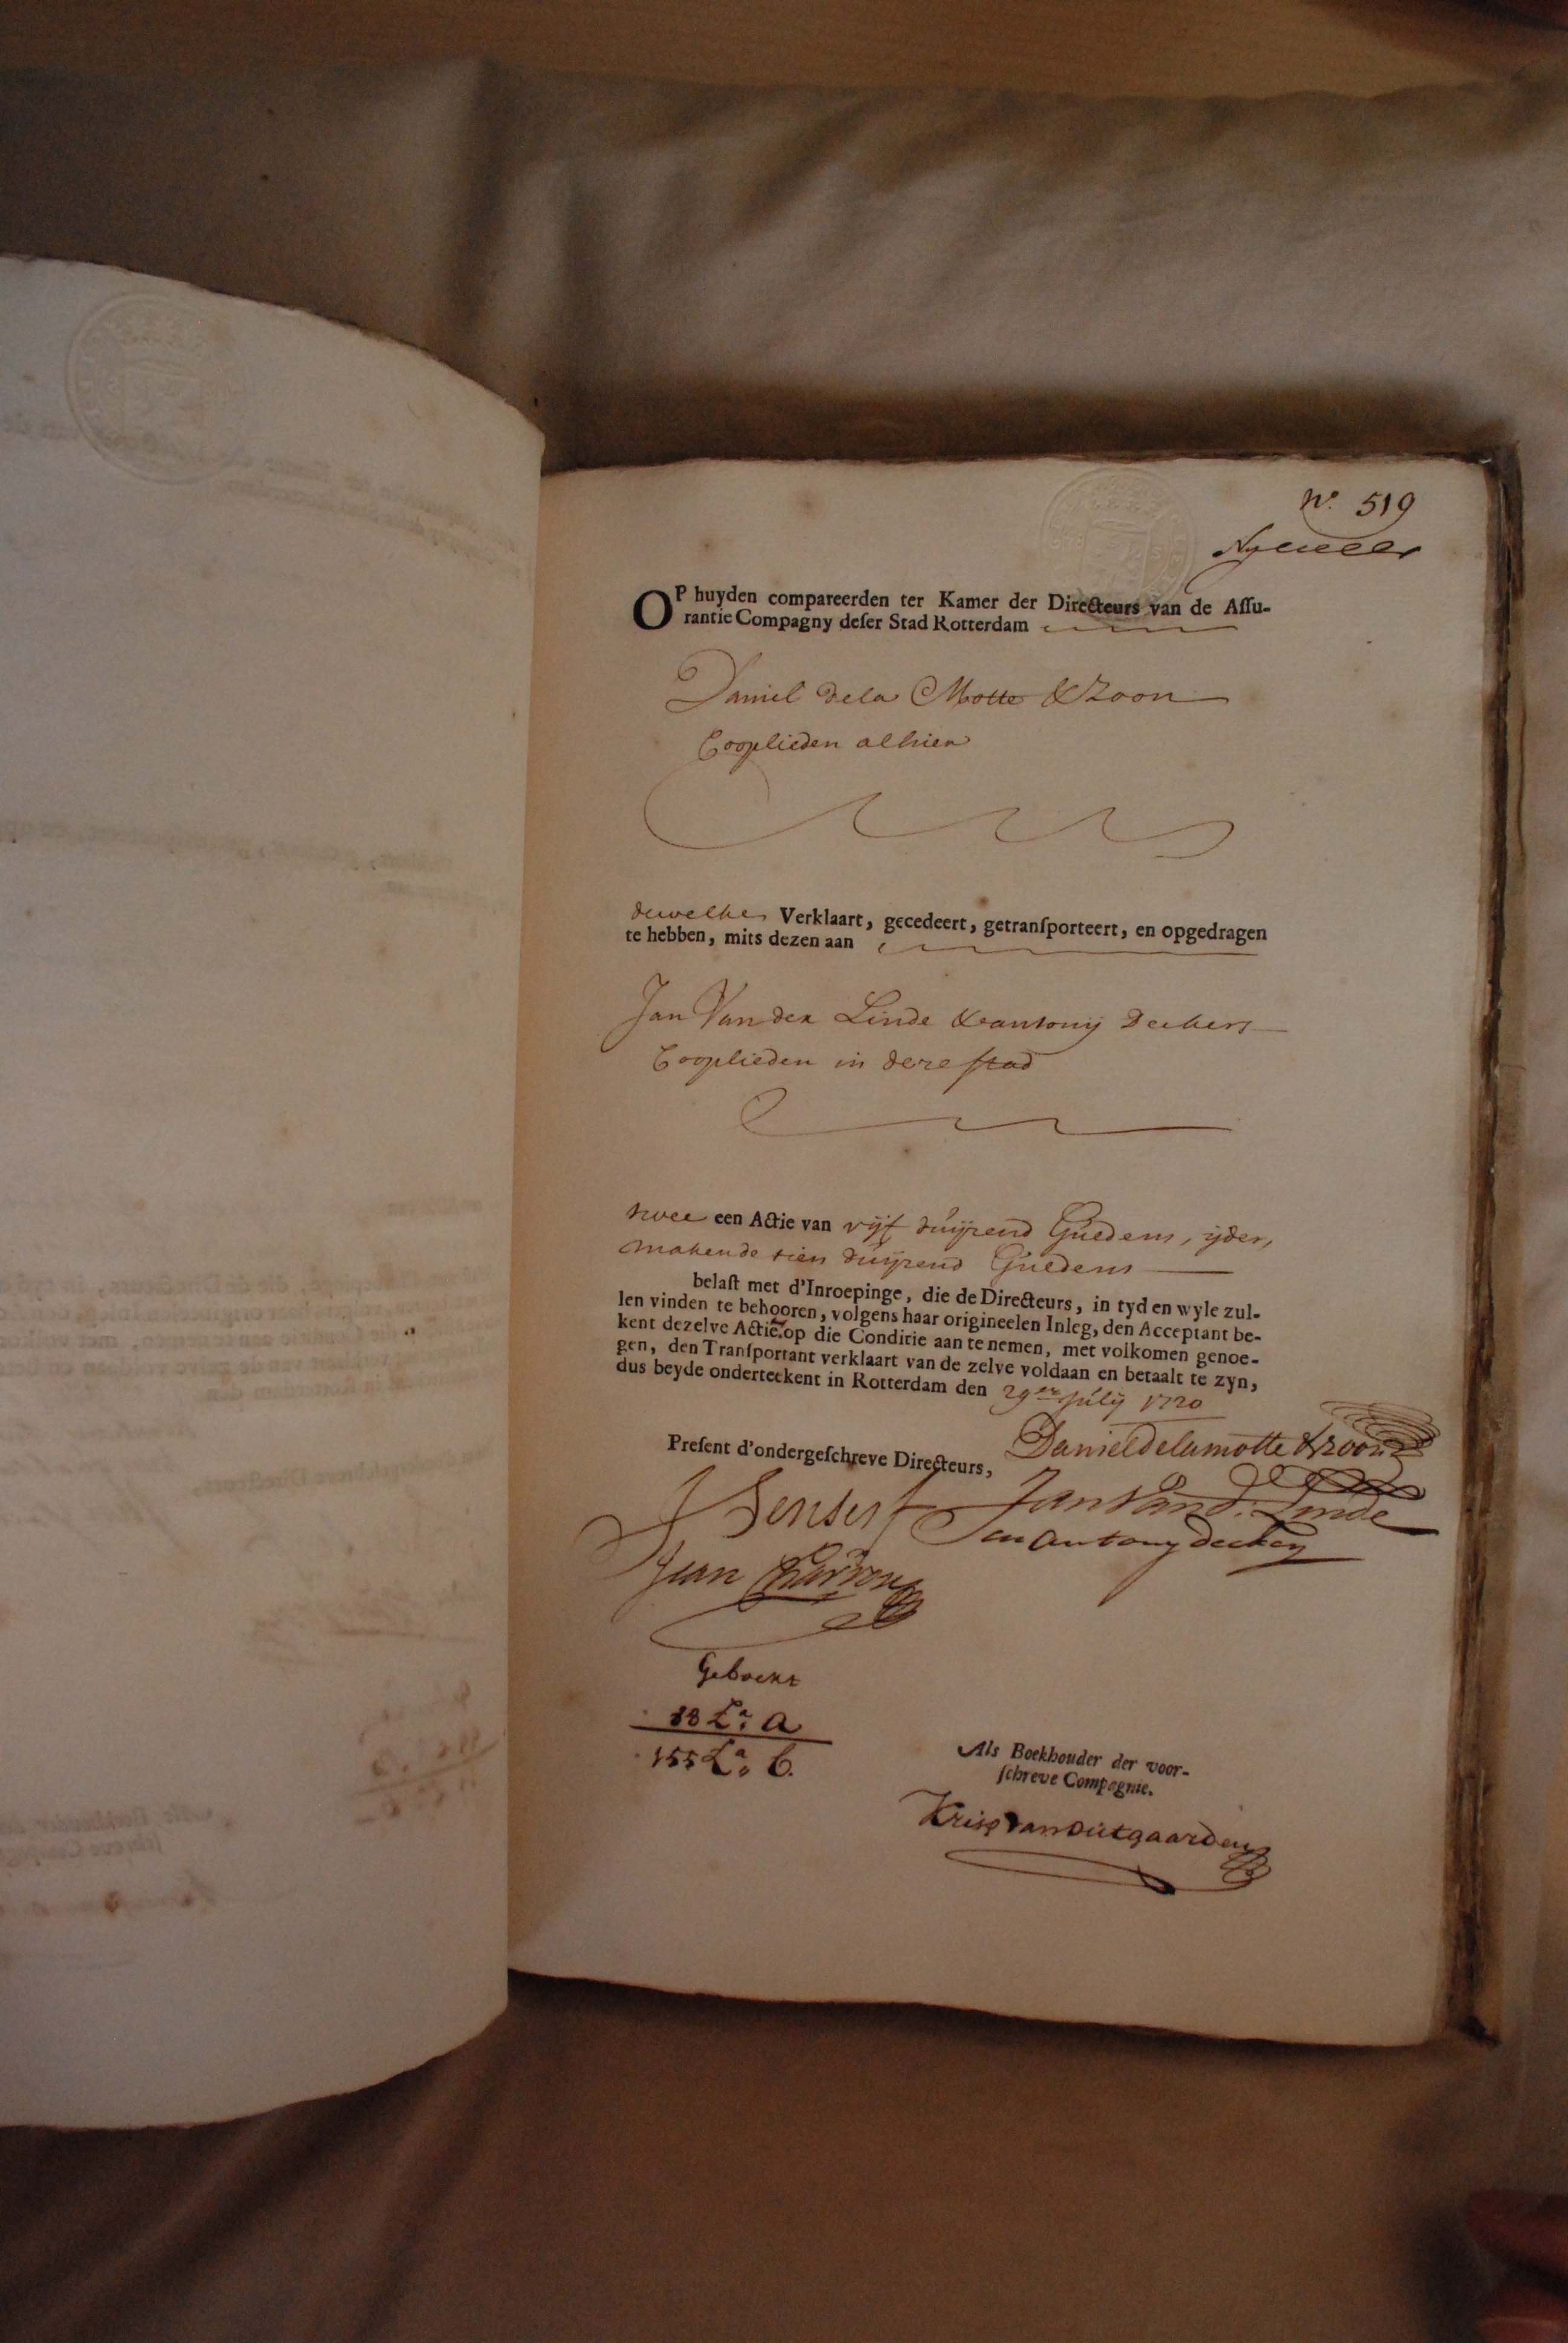 No. 519
OP huyden compareerden ter Kamer der Directeurs van de Assu-
rantie Compagny deser Stad Rotterdam
Daniel dela Motte & Zoon
Cooplieden alhier
dewelke Verklaart, gecedeert, getransporteert, en opgedragen
te hebben, mits dezen aan
Jan Van der Linde & antonij Deckers
Cooplieden in dese stad
twee een Actie van vijf duijzend Guldens, ijder,
makende tien duijzend Guldens
belast met d'Inroepinge, die de Directeurs, in tyd en wyle zul-
len vinden te behooren, volgens haar origineelen Inleg, den Acceptant be-
kent dezelve Actie op die Conditie aan te nemen, met volkomen genoe-
gen, den Transportant verklaart van de zelve voldaan en betaalt te zyn,
dus beyde onderteekent in Rotterdam den 29en Julij 1720
Present d'ondergeschreve Directeurs,
Daniel de lamotte & zoon
Jan Van d: Linde
Jean
Geboekt
88 La: A
155 La: C.
Als Boekhouder der voor-
schreve Compagnie.
Kris van Outgaarden